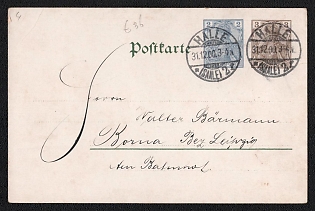 2 3
HALLE
31.12.00.3-4N.
* (SAALE) 2 *
HALLE
31.12.00.3-4N.
* (SAALE) 2 *
Postkarte
Herrn
Walter Bärmann
Borna Bez. Leipzig
Am Bahnhof